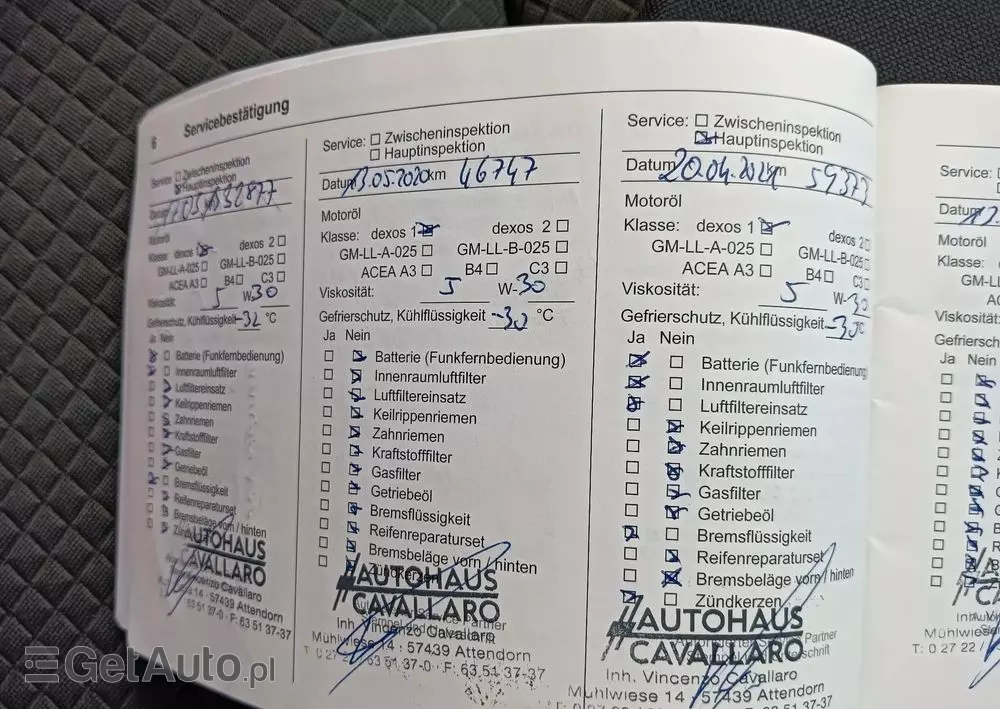 6 Servicebestätigung
Service: Zwischeninspektion
Hauptinspektion
32877
Motoröl
Klasse: dexos dexos 2
GM-LL-A-025 GM-LL-B-025
ACEA A3 B4 C3
Viskosität: 5 W-30
Gefrierschutz, Kühlflüssigkeit -32 °C
Ja Nein
Batterie (Funkfernbedienung)
Innenraumluftfilter
Luftfiltereinsatz
Keilrippenriemen
Zahnriemen
Kraftstofffilter
Gasfilter
Getriebeöl
Bremsflüssigkeit
Reifenreparaturset
Bremsbeläge vorn / hinten
AUTOHAUS
CAVALLARO
14 · 57439 Attendorn
63 51 37-37
Service: Zwischeninspektion
Hauptinspektion
Datum 13.05.2020 km 46747
Motoröl
Klasse: dexos 1 dexos 2
GM-LL-A-025 GM-LL-B-025
ACEA A3 B4 C3
Viskosität: 5 W-30
Gefrierschutz, Kühlflüssigkeit -30 °C
Ja Nein
Batterie (Funkfernbedienung)
Innenraumluftfilter
Luftfiltereinsatz
Keilrippenriemen
Zahnriemen
Kraftstofffilter
Gasfilter
Getriebeöl
Bremsflüssigkeit
Reifenreparaturset
Bremsbeläge vorn / hinten
Zündkerzen
AUTOHAUS
CAVALLARO
Inh. Vincenzo Cavallaro
Mühlwiese 14 · 57439 Attendorn
T: 0 27 22 / 63 51 37-0 · F: 63 51 37-37
Service: Zwischeninspektion
Hauptinspektion
Datum 20.04.2021 km 59372
Motoröl
Klasse: dexos 1 dexos 2
GM-LL-A-025 GM-LL-B-025
ACEA A3 B4 C3
Viskosität: 5 W-30
Gefrierschutz, Kühlflüssigkeit
Ja Nein
Batterie (Funkfernbedienung
Innenraumluftfilter
Luftfiltereinsatz
Keilrippenriemen
Zahnriemen
Kraftstofffilter
Gasfilter
Getriebeöl
Bremsflüssigkeit
Reifenreparaturset
Bremsbeläge vorn / hinten
Zündkerzen
AUTOHAUS
CAVALLARO
Partner
Inh. Vincenzo Cavallaro
Mühlwiese 14 · 57439 Attendorn
63 51 37-37
Service:
Datum
Motoröl
Klasse:
Viskosität:
Gefriersch
Ja Nein
Mühlwies
T: 0 27 22 /
GetAuto.pl